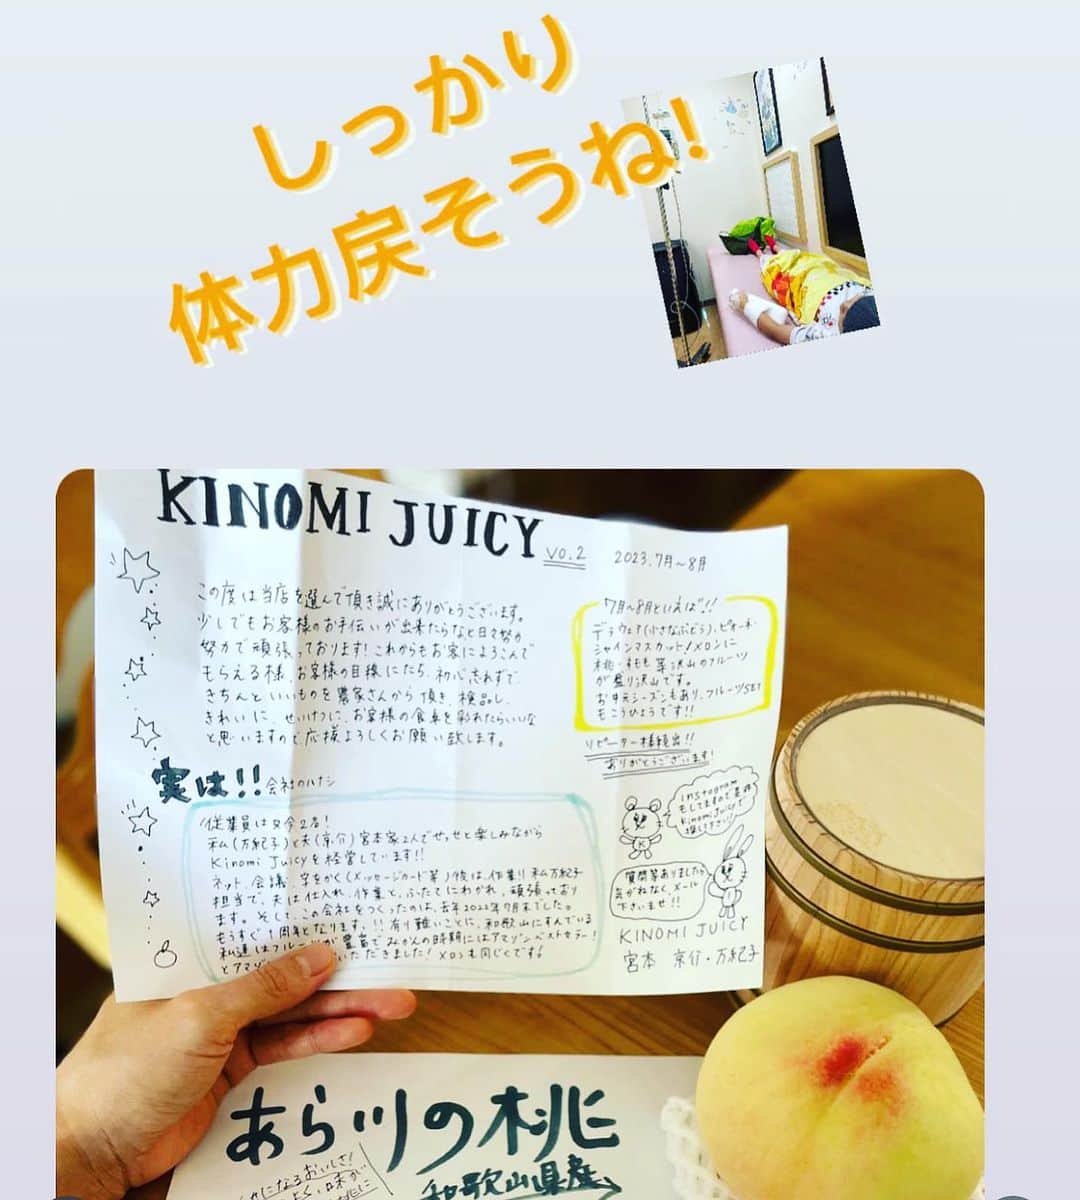 しっかり
体力戻そうね!
KINOMI JUICY
vo.2
2023.7月～8月
この度は当店を選んで頂き誠にありがとうございます。
少しでもお客様のお手伝いが出来たらなと日々努力
努力で頑張っております!これからもお客によろこんで
もらえる様、お客様の目線にたち、初心忘れずで、
きちんといいものを農家さんから頂き、検品し、
きれいに、せいけつに、お客様の食卓を彩れたらいいな
と思いますので応援よろしくお願い致します。
7月～8月といえば!!
デラウェア(小さなぶどう)、ピオーネ
シャインマスカット/メロンに
桃・すもも 等 沢山のフルーツ
が盛り沢山です。
お中元シーズンもあり、フルーツSET
もこうひょうです!!
リピーター様続出!!
ありがとうございます!
実は!!会社のハナシ
従業員は只今2名!
私(万紀子)と夫(京介)宮本家2人でせっせと楽しみながら
Kinomi Juicyを経営しています!!
ネット、会議、字をかく(メッセージカード等)/後は、作業!!私万紀子
担当で、夫は仕入れ、作業と、ふたてにわかれ、頑張っており
ます。そして、この会社をつくったのは、去年2022年7月末でした。
もうすぐ1周年となります、!!有り難いことに、和歌山にすんでいる
私達はフルーツが豊富で みかんの時期にはアマゾンベストセラー!
とアマゾ いただきました!メロンも同じくです!
instagram
もしてますので是非
kinomi juicyで
探して下さい!!
質問等ありましたら
気がねなく、メール
下さいませ!!
KINOMI JUICY
宮本 京介・万紀子
あら川の桃
和歌山県産
になるおいしさ!